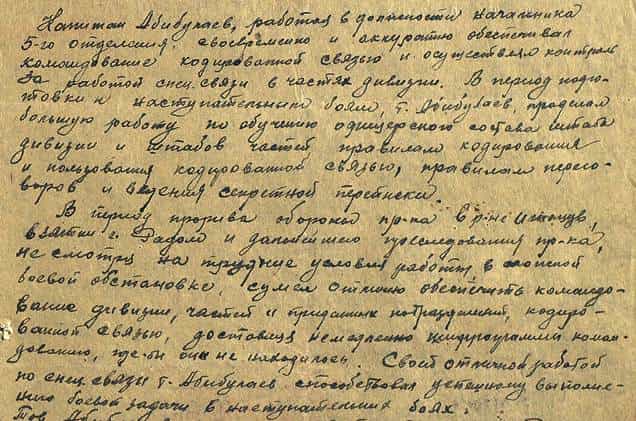 Капитан Абибулаев, работая в должности начальника
5-го отделения, своевременно и аккуратно обеспечивал
командование кодированной связью и осуществлял контроль
за работой спец. связи в частях дивизии. В период подго-
товки к наступательным боям, т. Абибулаев, проделал
большую работу по обучению офицерского состава штаба
дивизии и штабов частей правилам кодирования
и пользования кодированной связью, правилам перего-
воров и ведения секретной переписки.
В период прорыва обороны пр-ка в р-не
взятии г. Радом и дальнейшего преследования пр-ка,
не смотря на трудные условия работы, в сложной
боевой обстановке, сумел отлично обеспечить командо-
вание дивизии, частей и приданных подразделений, кодиро-
ванной связью, доставляя немедленно шифрограммы коман-
дованию, где-бы оно не находилось. Своей отличной работой
по спец. связи т. Абибулаев способствовал успешному выполне-
нию боевой задачи в наступательных боях.
Тов